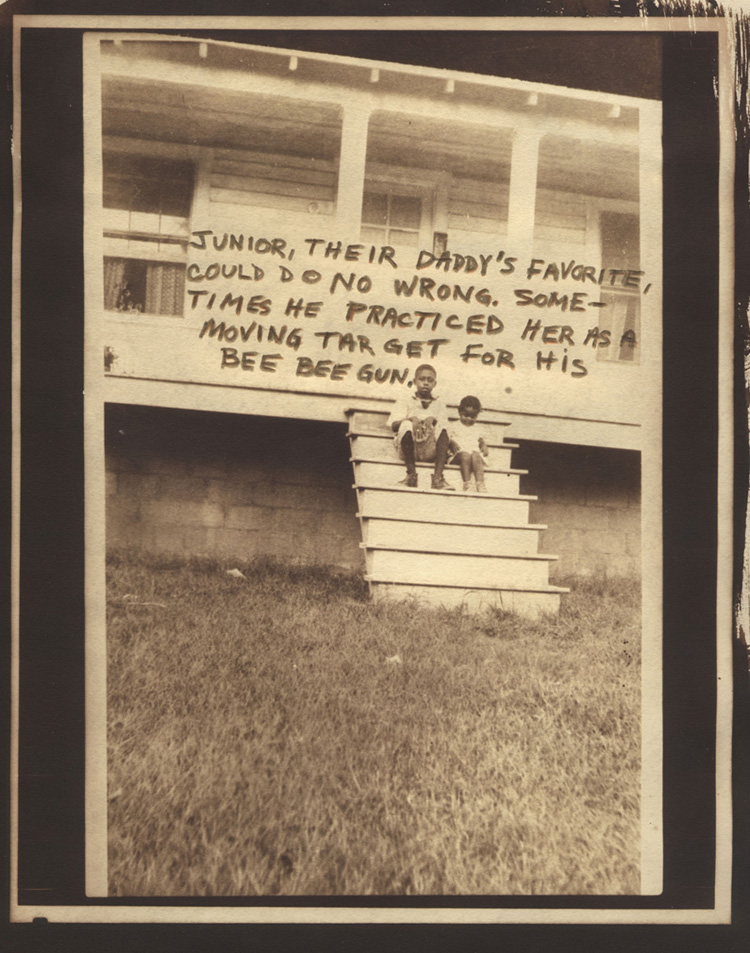 JUNIOR, THEIR DADDY'S FAVORITE,
COULD DO NO WRONG. SOME-
TIMES HE PRACTICED HER AS A
MOVING TARGET FOR HIS
BEE BEE GUN.